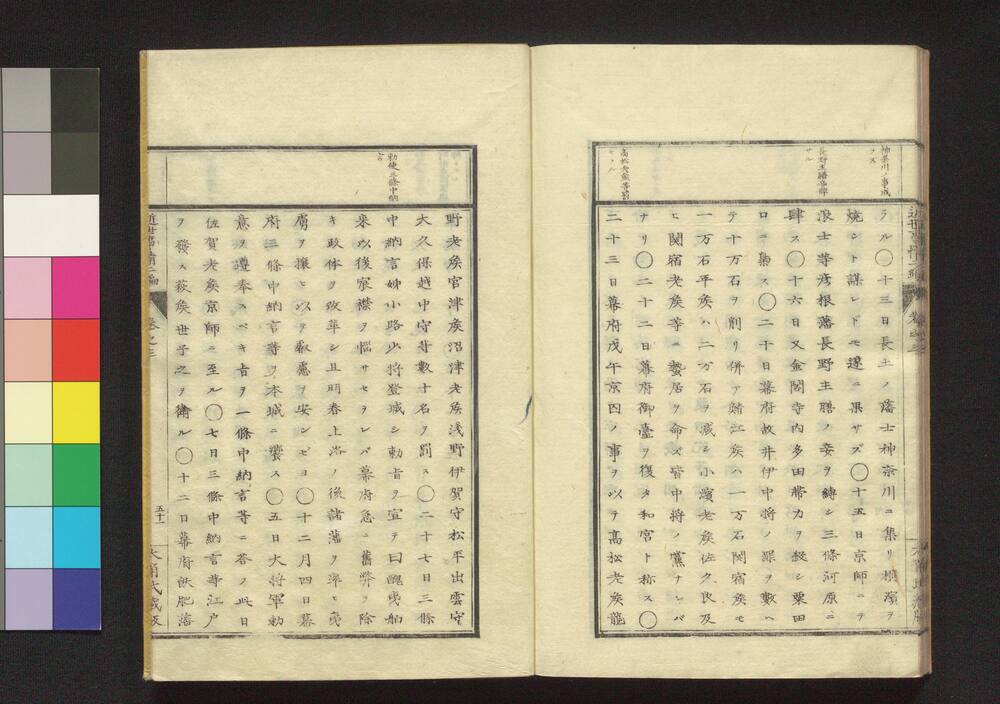 神奈川ノ事成
ラス
長野主膳ノ妾肆
サル
高松老侯等罰
セラル
ラル〇十三日長土ノ藩士神奈川ニ集リ横濱ヲ
燒ント謀レドモ遂ニ果サズ〇十五日京師ニテ
浪士等彦根藩長野主膳ノ妾ヲ縛シ三條河原ニ
肆ス〇十六日又金閣寺内多田帶刀ヲ殺シ粟田
口ニ梟ス〇二十日幕府故井伊中將ノ罪ヲ數ヘ
テ十万石ヲ削リ併テ鯖江侯ハ一万石関宿侯モ
一万石平侯ハ二万石ヲ減シ小濱老侯佐久良及
ヒ関宿老侯等ニ蟄居ヲ命ズ皆中将ノ黨ナレバ
ナリ〇二十二日幕府御臺ヲ復タ和宮ト称ス〇
二十三日幕府戊午京四ノ事ヲ以テ高松老侯龍
近世事情二編
卷之三
勅使三條中納
言
野老侯宮津侯沼津老侯浅野伊賀守松平出雲守
大久保越中守等數十名ヲ罰ス〇二十七日三條
中納言姉小路少將登城シ勅旨ヲ宣テ曰醜夷舶
来以後宸襟ヲ惱サセヲレバ幕府急ニ舊弊ヲ除
キ政体ヲ改革シ且明春上洛ノ後諸藩ヲ率ヒ夷
虜ヲ攘ヒ以テ叡慮ヲ安ンゼヨ〇十二月四日幕
府三條中納言等ヲ本城ニ饗ス〇五日大将軍勅
意ヲ遵奉スベキ旨ヲ一條中納言等ニ答ノ此日
佐賀老侯京師ニ至ル〇七日三條中納言等江戸
ヲ發ス萩侯世子之ヲ衛ル〇十二日幕府飫肥藩
近世事情二編
卷之三
五十一
大角氏蔵版